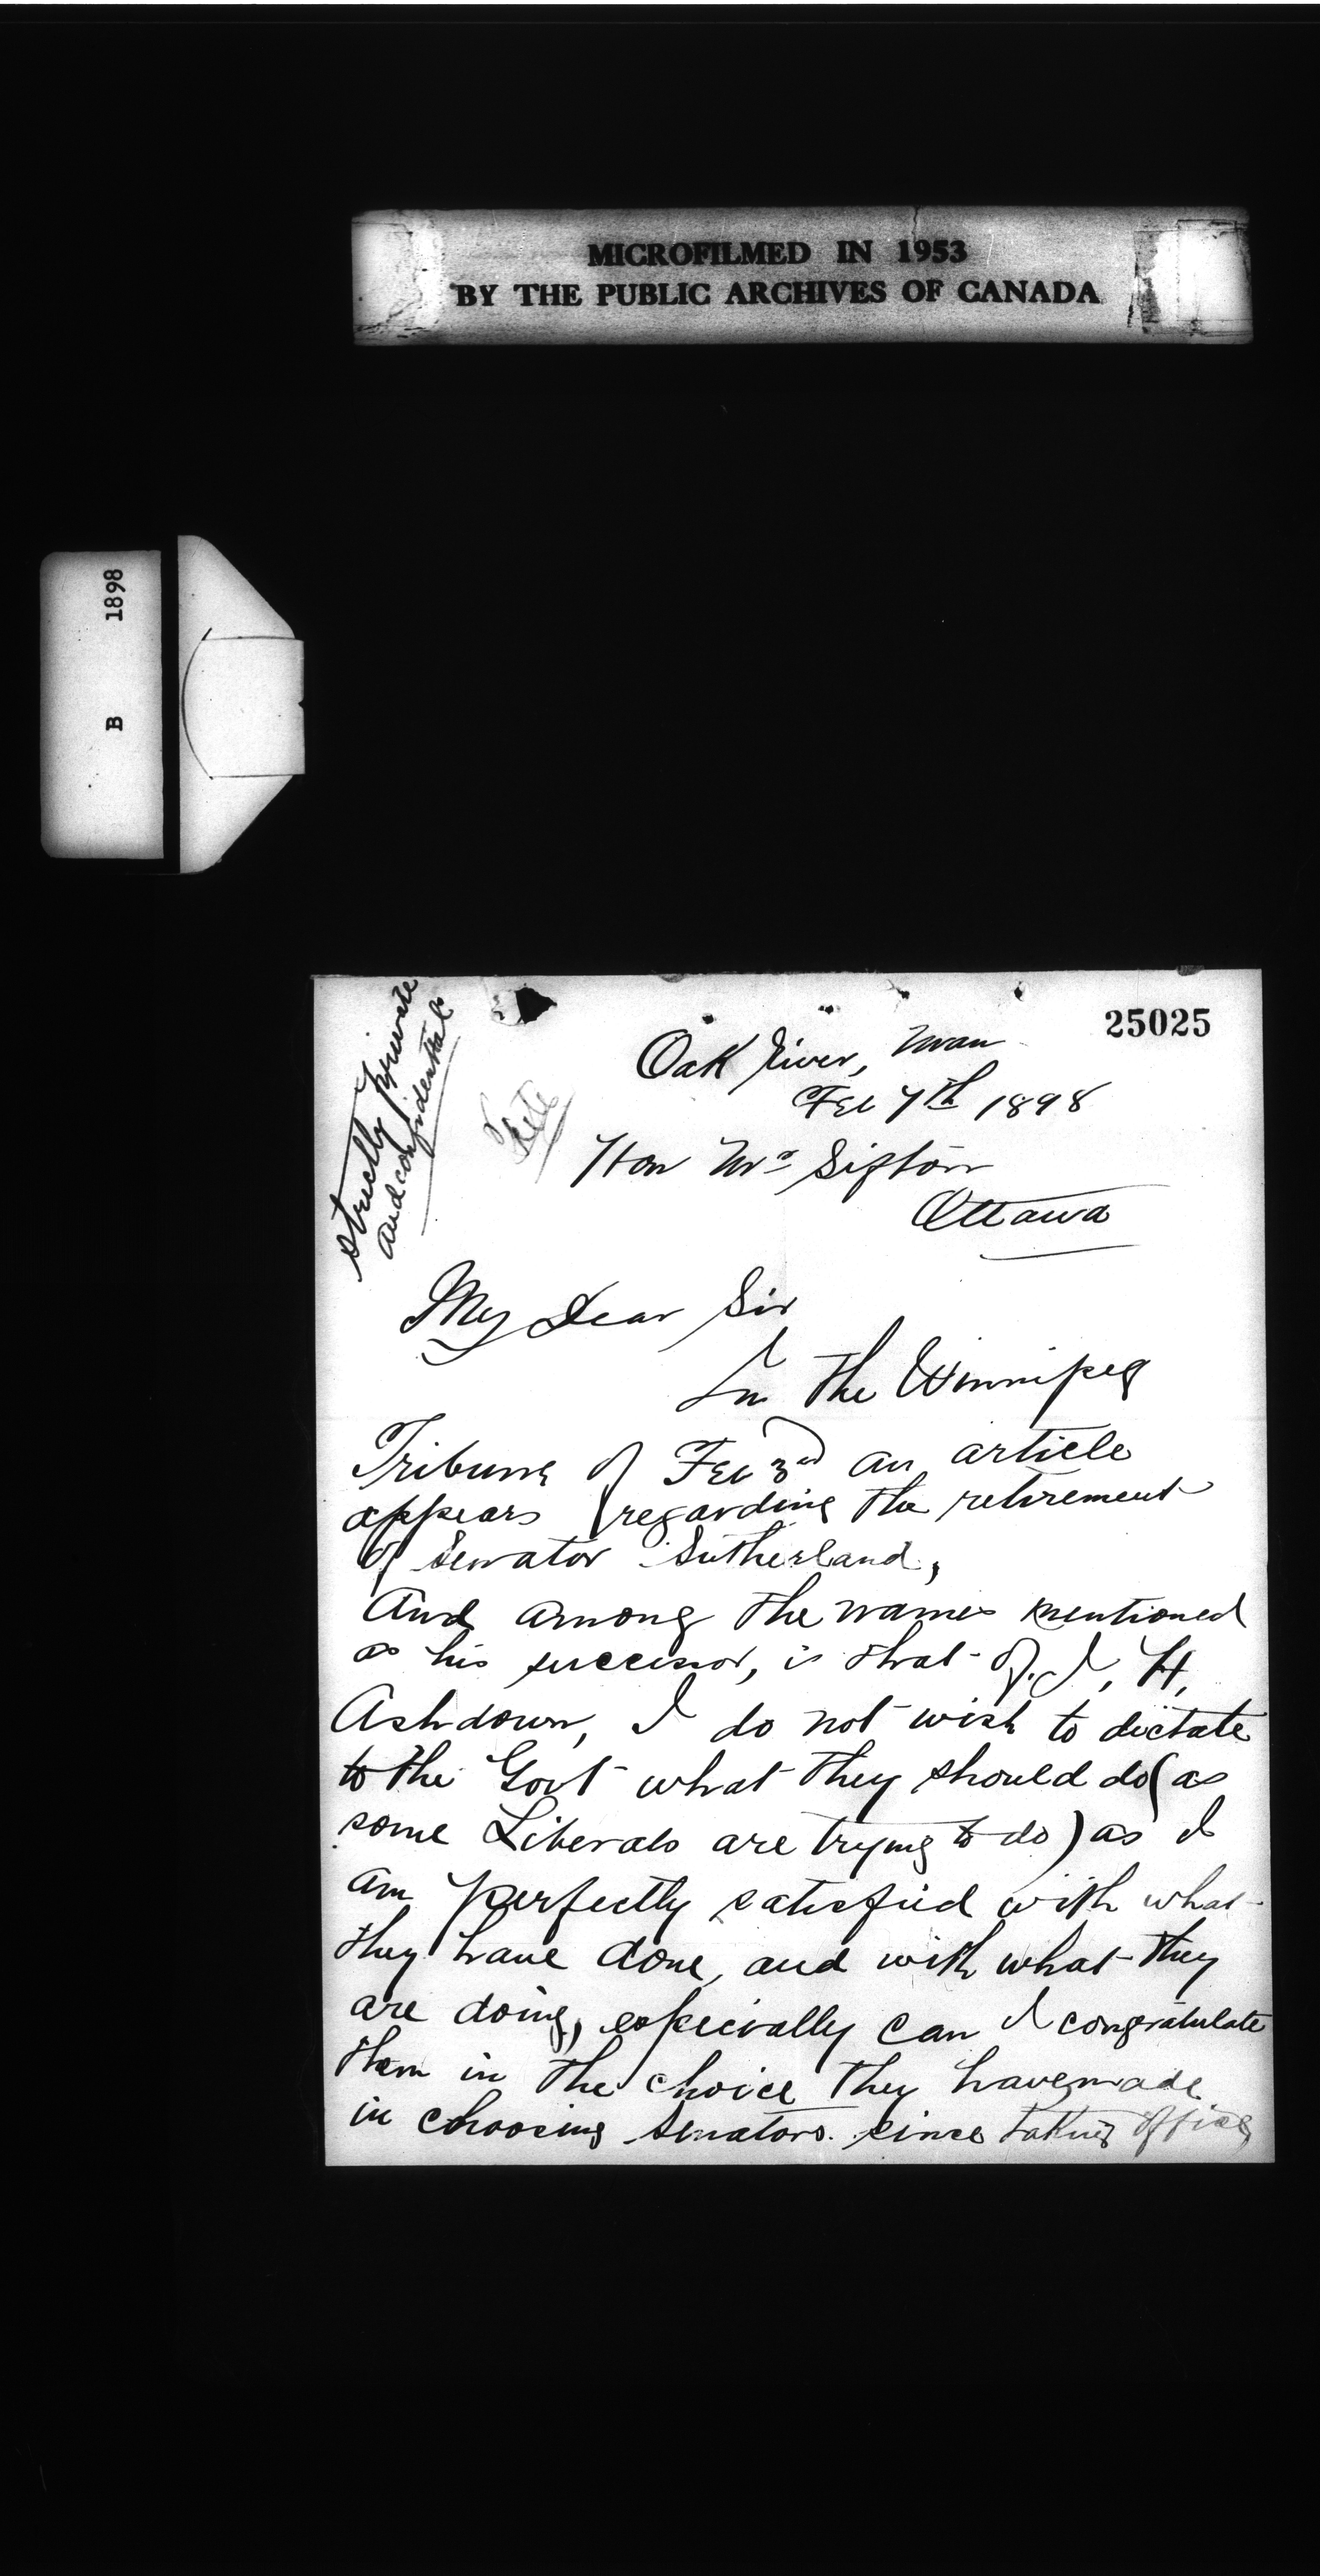 MICROFILMED IN 1953
BY THE PUBLIC ARCHIVES OF CANADA
B 1898
25025
strictly private
and confidential
Oak River, Man
Feb 7th 1898
Hon Mr Sifton
Ottawa
My Dear Sir
In the Winnipeg
Tribune of Feb 3rd an article
appears regarding the retirement
of Senator Sutherland,
And among the names mentioned
as his successor, is that of J, H,
Ashdown, I do not wish to dictate
to the Govt what they should do (as
some Liberals are trying to do) as I
am perfectly satisfied with what
they have done, and with what they
are doing, especially can I congratulate
them in the choice they have made
in choosing senators since taking office